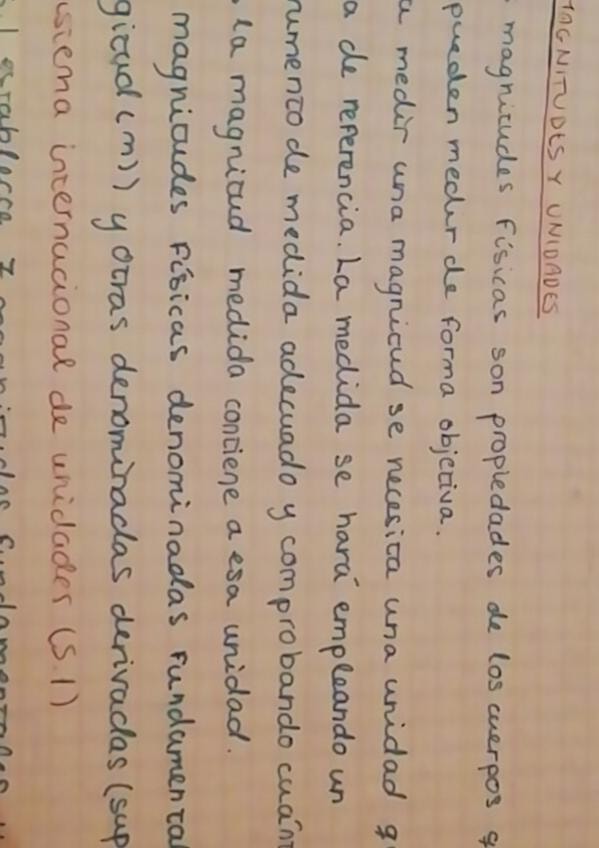 MAGNITUDES Y UNIDADES
magnitudes físicas son propiedades de los cuerpos q
pueden medir de forma objetiva.
a medir una magnitud se necesita una unidad q
a de referencia. La medida se hará empleando un
rumento de medida adecuado y comprobando cuán
la magnitud medida contiene a esa unidad.
magnitudes físicas denominadas fundamental
gitud (m)) y otras denominadas derivadas (sup
istema internacional de unidades (S.I)
establece 7 magnitudes fundamentales y